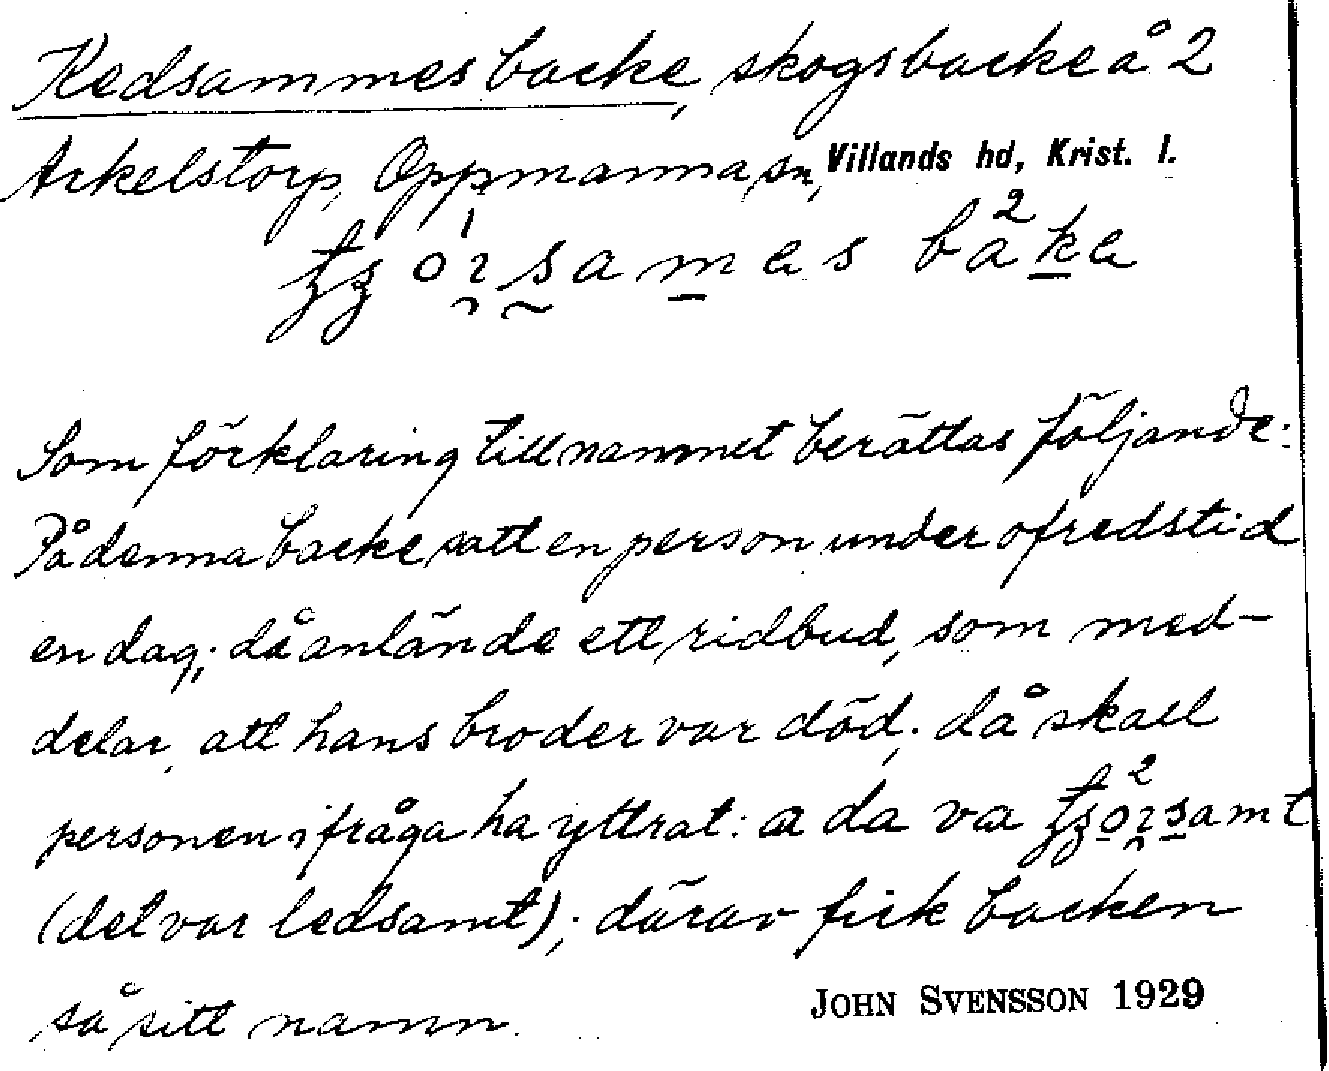 Kedsammes backe, skogsbacke å 2
Arkelstorp, Oppmanna sn, Villands hd, Krist. l.
Som förklaring till namnet berättas följande:
På denna backe satt en person under ofredstid
en dag; då anlände ett ridbud, som med-
delar, att hans broder var död; då skall
personen i fråga ha yttrat: a da va
(det var ledsamt); därav fick backen
så sitt namn.
JOHN SVENSSON 1929